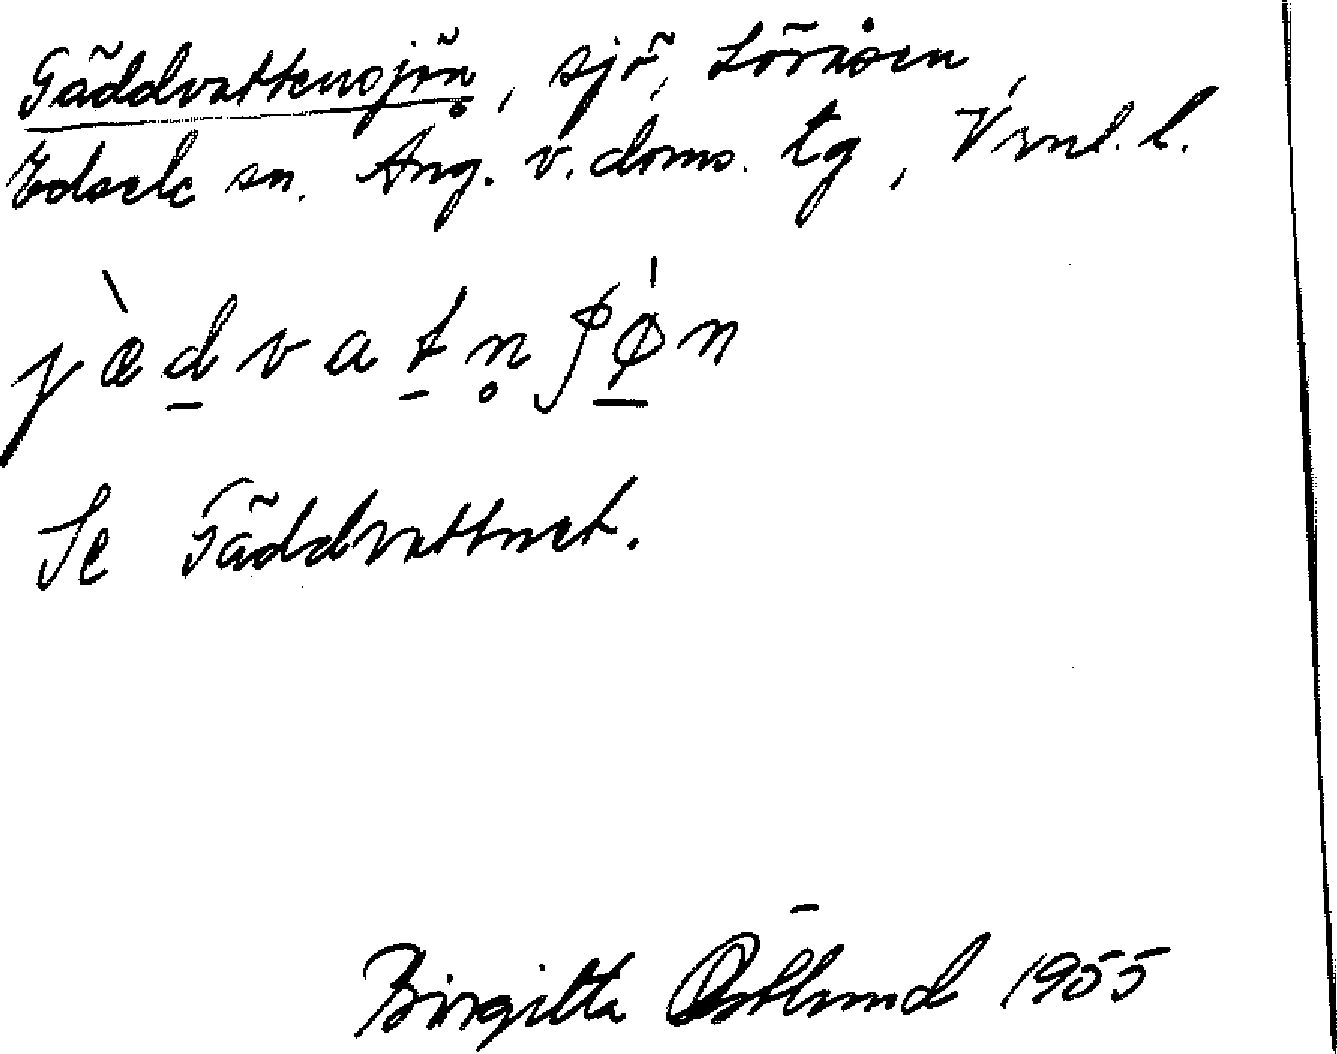 Gäddvattensjön, sjö, Lövåsen,
Edsele sn. Ång. v. doms. tg, Vrnl. l.
jæ̀dvatn̥ʃǿn
Se Gäddvattnet.
Birgitta Östlund 1955